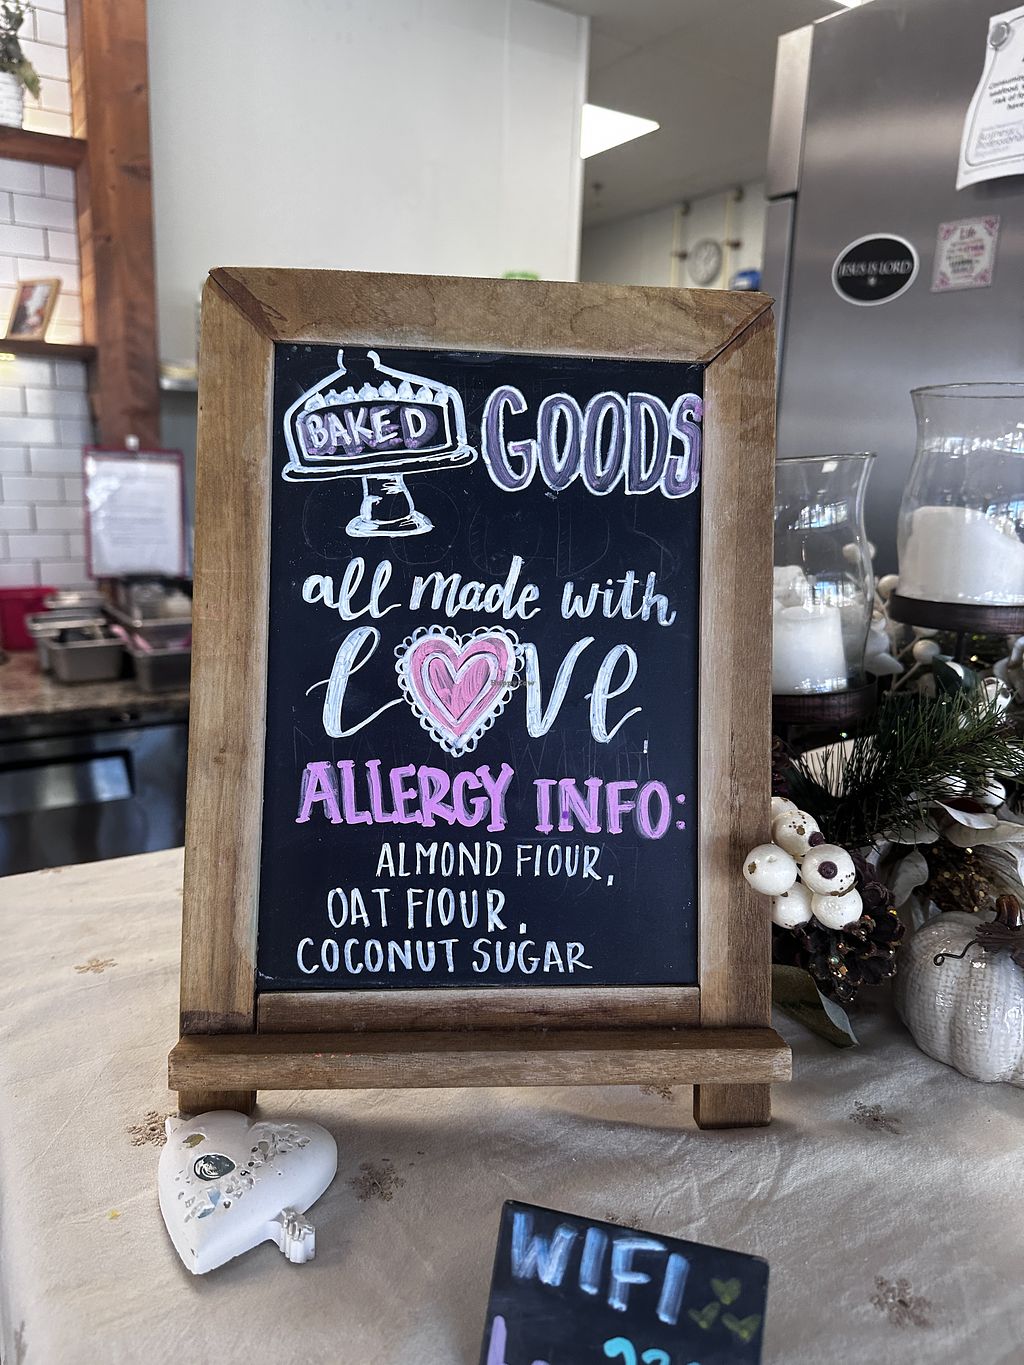 BAKED GOODS
all made with
love
ALLERGY INFO:
ALMOND FlOUR,
OAT FlOUR,
COCONUT SUGAR
JESUS IS LORD
Life
WIFI